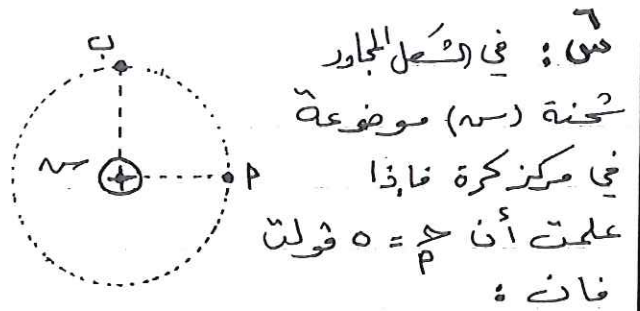 س٦: في الشكل المجاور
شحنة (س) موضوعة
في مركز كرة فإذا
علمت أن جـ م = ٥ فولت
فان :
ب
س
+
م